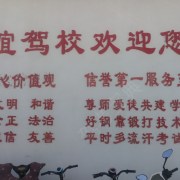 谊驾校欢迎您
心价值观 信誉第一服务至
文明 和谐 尊师爱徒共建学
公正 法治 好钢靠锻打技术
诚信 友善 平时多流汗考试